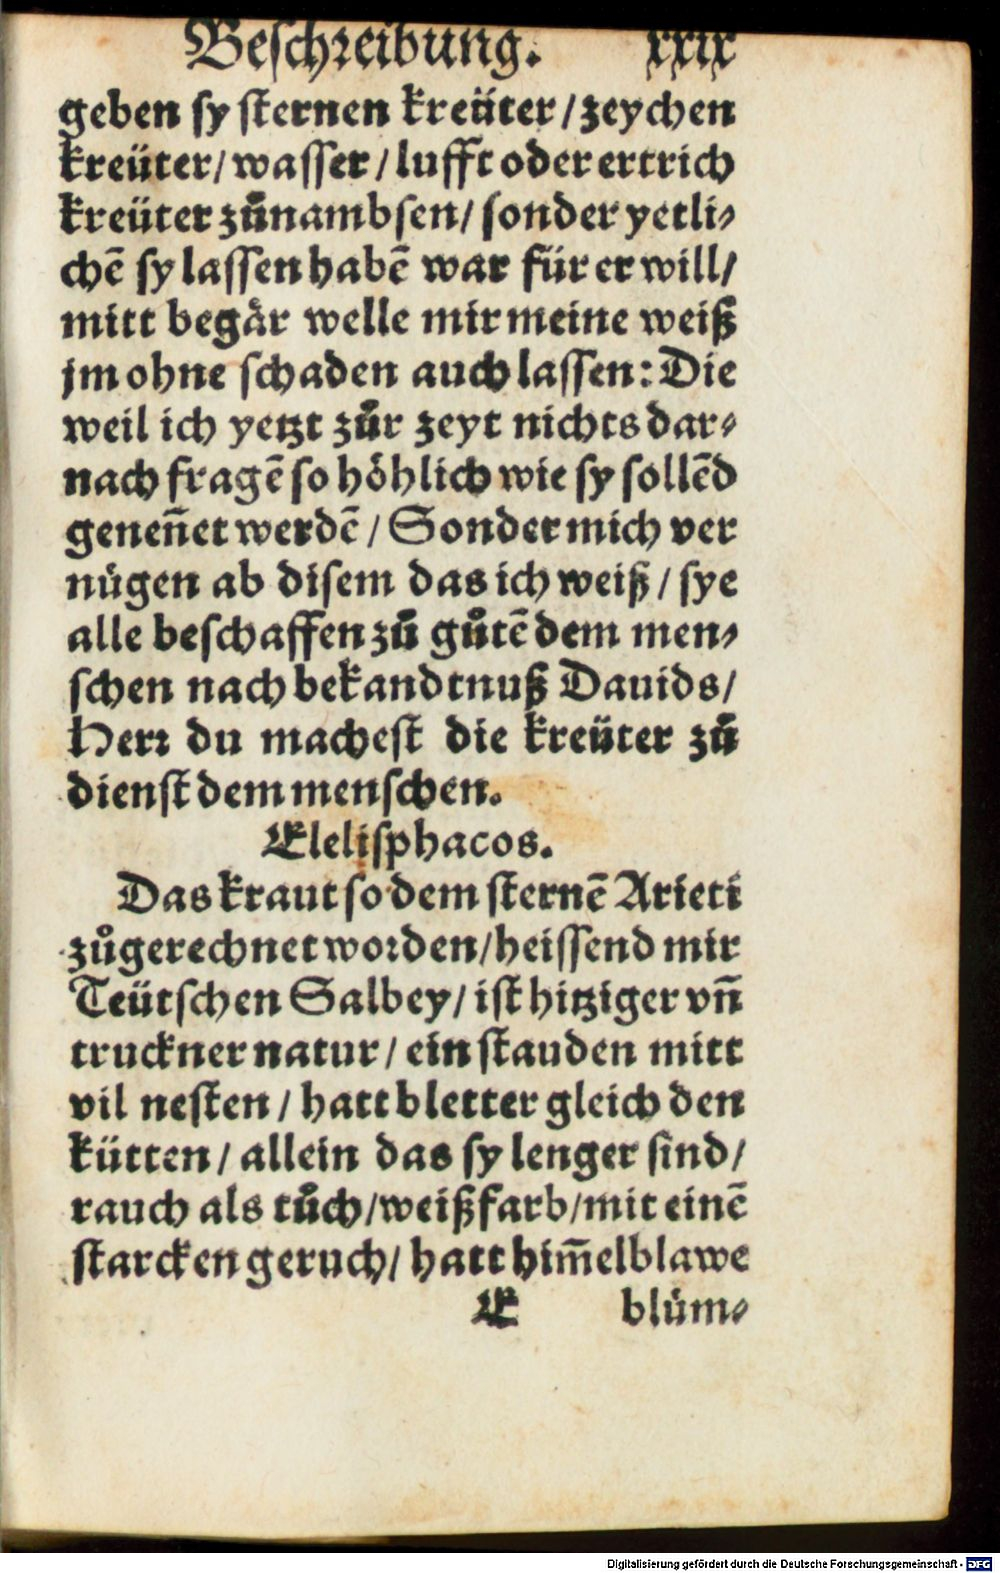 Beschreibung. xxix
geben sy sternen kreüter / zeychen
kreüter / wasser / lufft oder ertrich
kreüter zůnambsen / sonder yetli⸗
chē sy lassen habē war für er will /
mitt begär welle mir meine weiß
jm ohne schaden auch lassen: Die
weil ich yetzt zůr zeyt nichts dar⸗
nach fragē so höhlich wie sy sollēd
geneñet werdē / Sonder mich ver
nügen ab disem das ich weiß / sye
alle beschaffen zů gůtē dem men⸗
schen nach bekandtnuß Dauids /
Herr du machest die kreüter zů
dienst dem menschen.
Elelisphacos.
Das kraut so dem sternē Arieti
zůgerechnet worden / heissend mir
Teütschen Salbey / ist hitziger vñ
truckner natur / ein stauden mitt
vil nesten / hatt bletter gleich den
kütten / allein das sy lenger sind /
rauch als tůch / weißfarb / mit einē
starcken geruch / hatt him̄elblawe
E blüm⸗
Digitalisierung gefördert durch die Deutsche Forschungsgemeinschaft - DFG